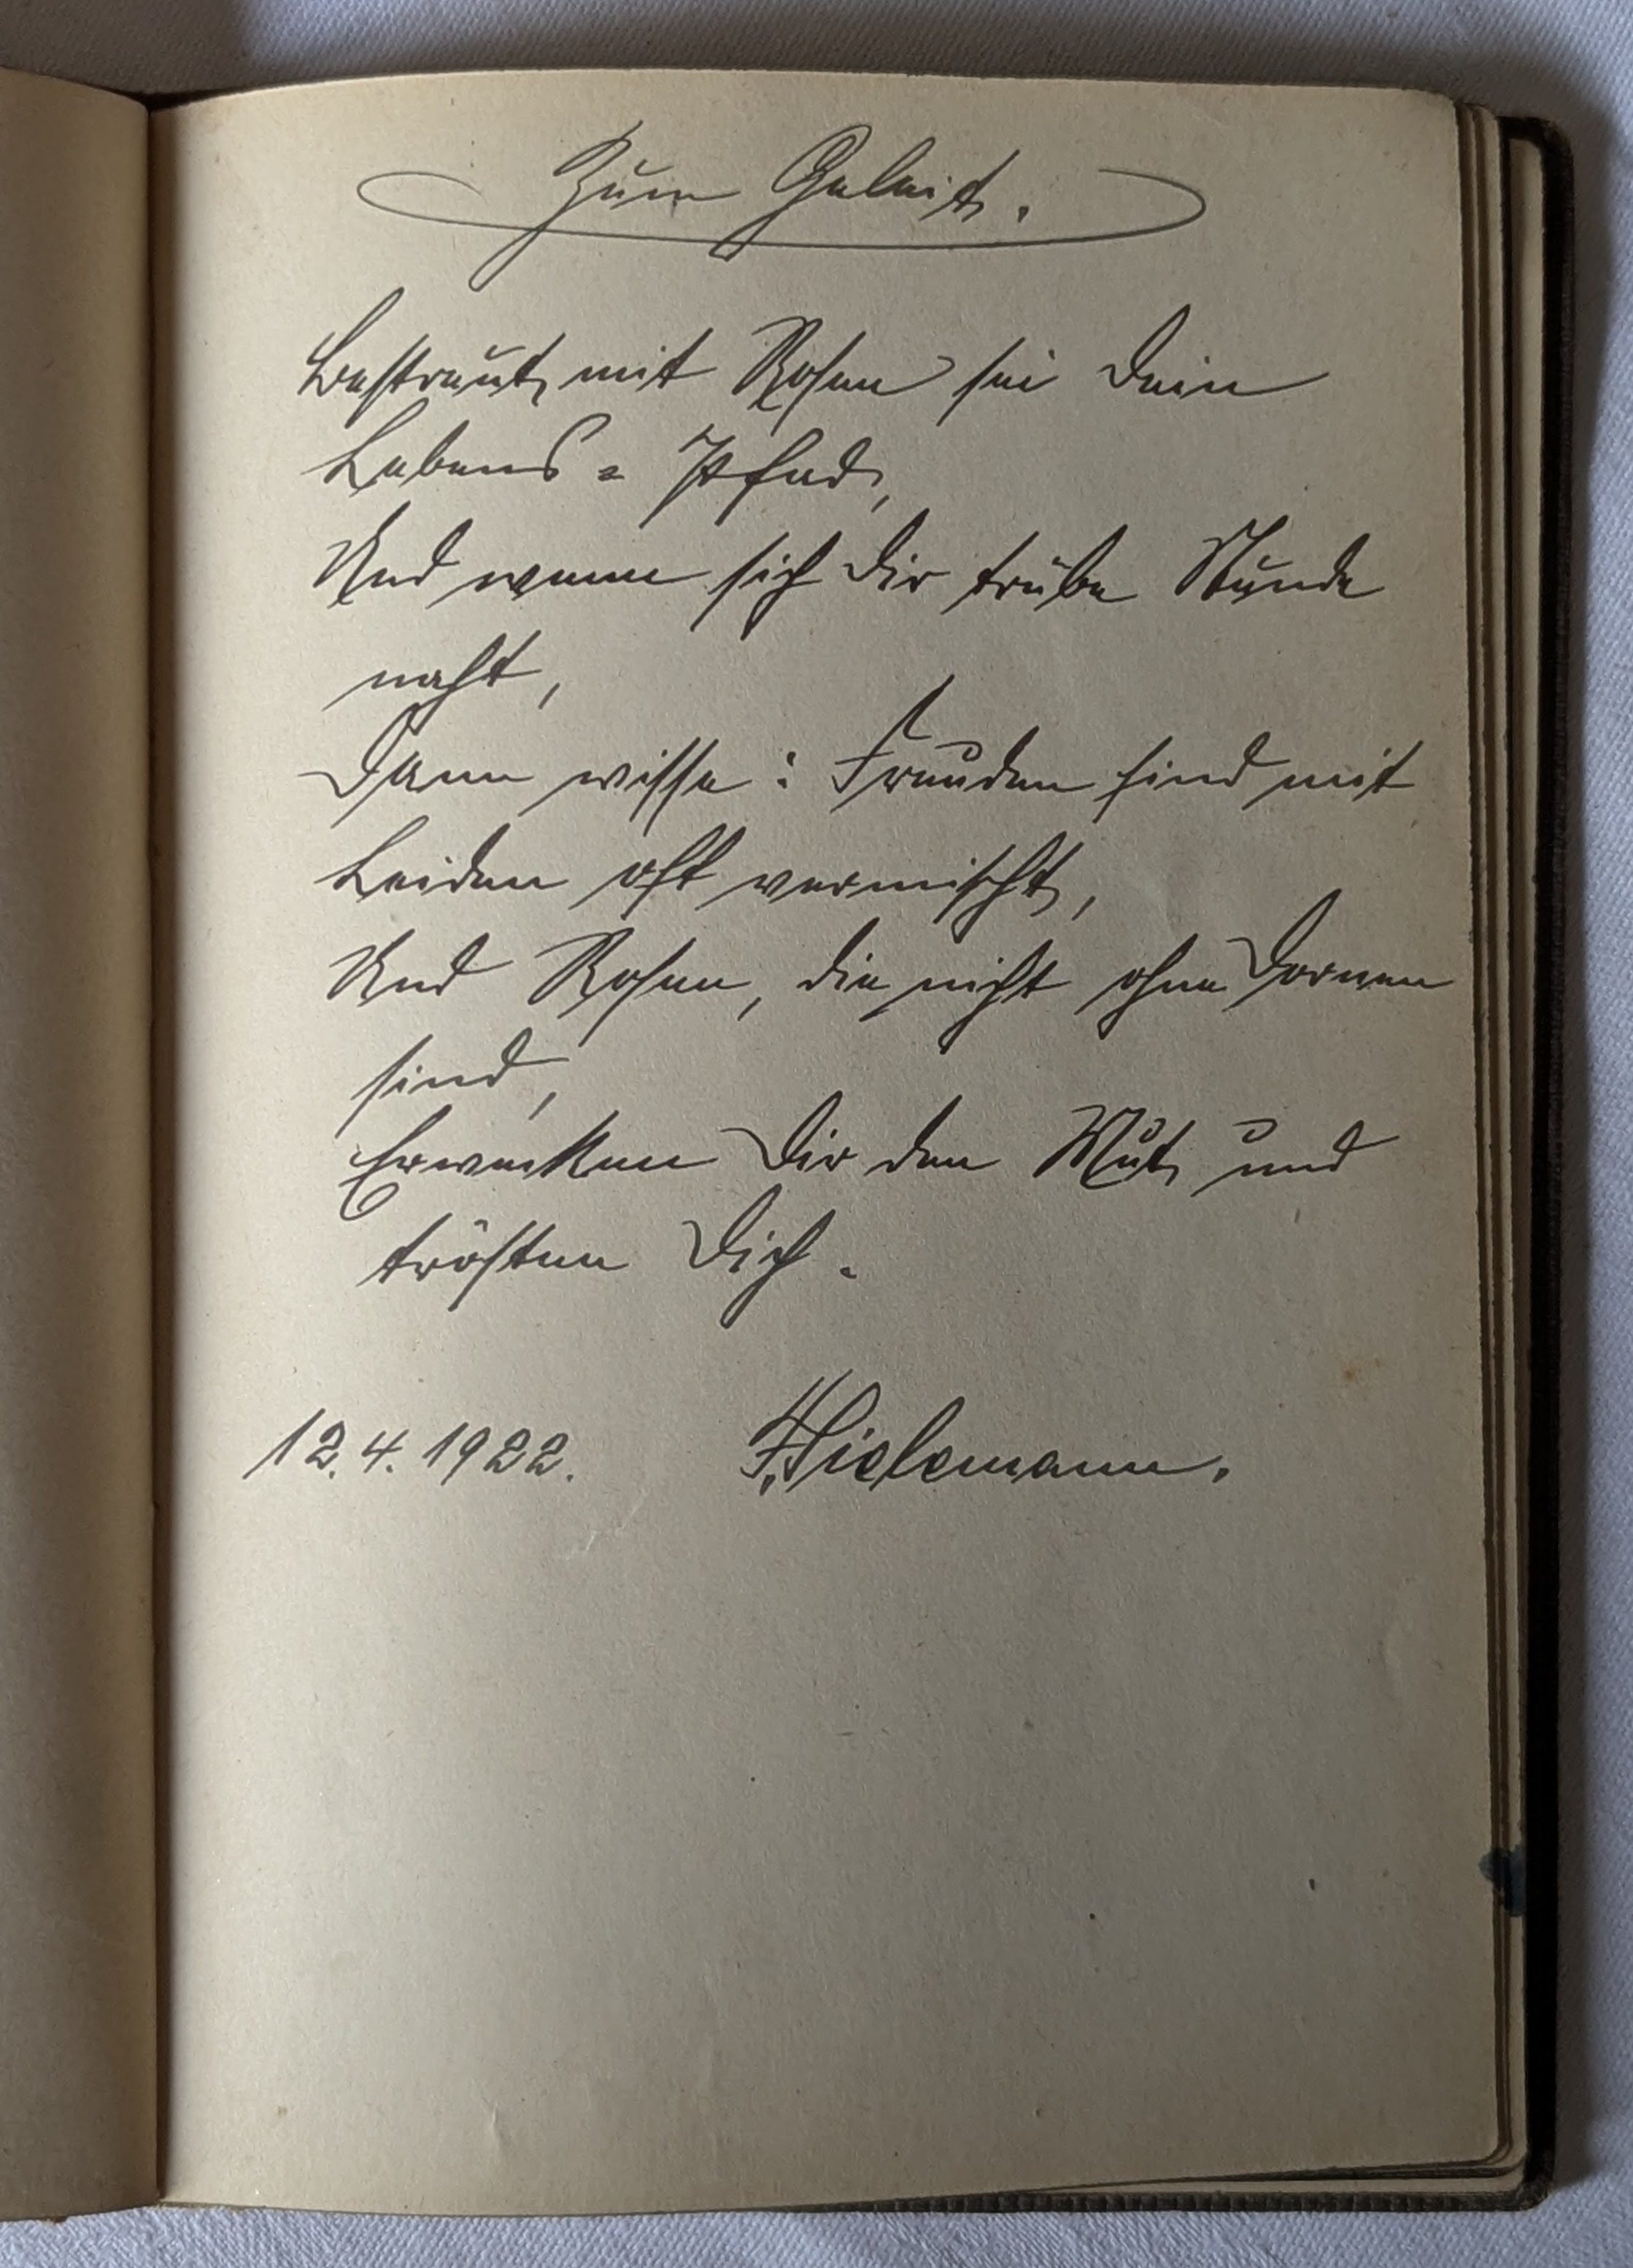 Zum Geleit.
Bestreut mit Rosen sei Dein
Lebens = Pfad,
Und wenn sich Dir trübe Stunde
naht,
Dann wisse: Freuden sind mit
Leiden oft vermischt,
Und Rosen, die nicht ohne Dornen
sind,
Erwecken Dir den Mut und
trösten Dich.
12.4.1922. Hielemann.